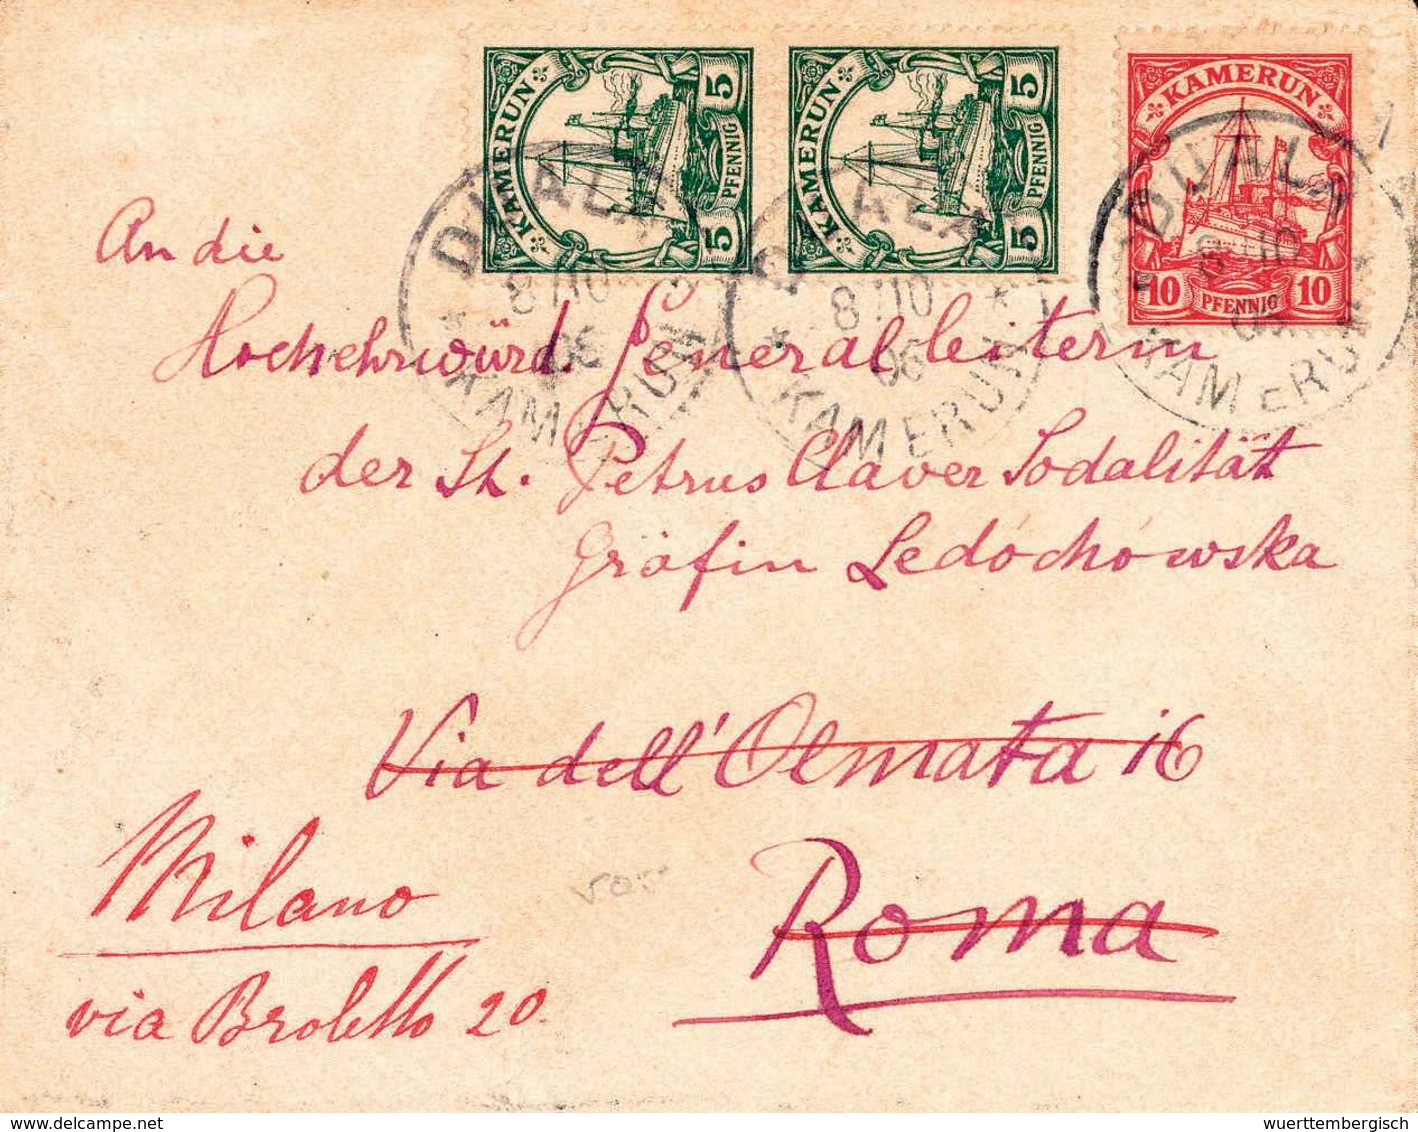 KAMERUN
5 5
PFENNIG
KAMERUN
5 5
PFENNIG
KAMERUN
10 PFENNIG 10
DUALA
8/10
06
KAMERUN
DUALA
8/10
06
KAMERUN
DUALA
8/10
KAMERUN
An die
Hochehrwürd. Generalleiterin
der St. Petrus Claver Sodalität
Gräfin Ledóchówska
Via dell'Olmata 16
Roma
Milano
via Broletto 20.
delcampe.net
wuerttembergisch